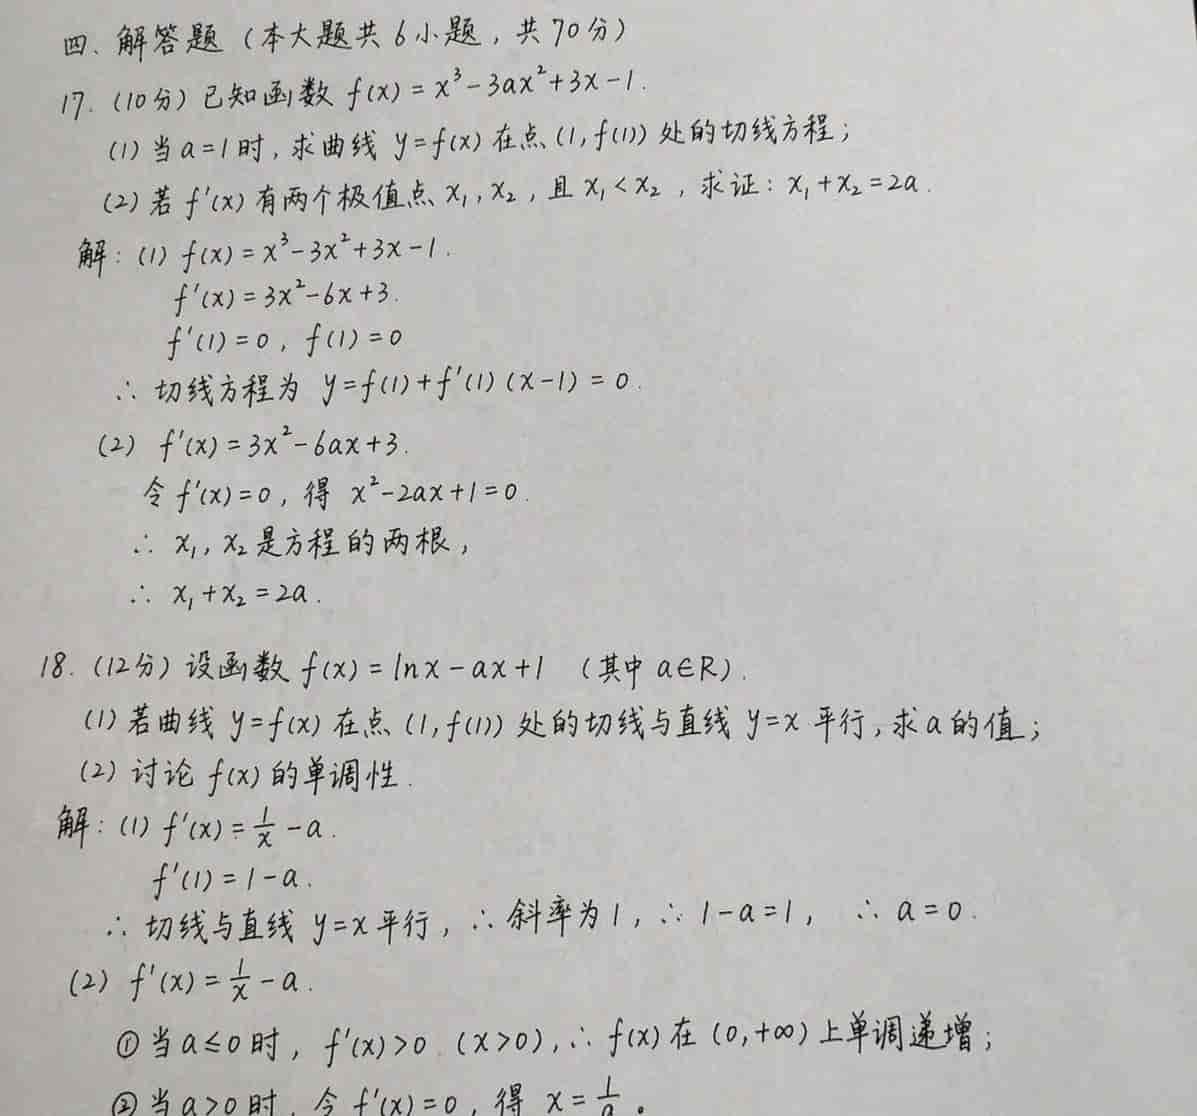 四、解答题（本大题共6小题，共70分）
17.（10分）已知函数 f(x) = x³ - 3ax² + 3x - 1.
(1) 当 a = 1 时，求曲线 y = f(x) 在点 (1, f(1)) 处的切线方程；
(2) 若 f'(x) 有两个极值点 x₁, x₂，且 x₁ < x₂，求证：x₁ + x₂ = 2a.
解：(1) f(x) = x³ - 3x² + 3x - 1.
f'(x) = 3x² - 6x + 3.
f'(1) = 0，f(1) = 0
∴ 切线方程为 y = f(1) + f'(1) (x-1) = 0.
(2) f'(x) = 3x² - 6ax + 3.
令 f'(x) = 0，得 x² - 2ax + 1 = 0.
∴ x₁, x₂ 是方程的两根，
∴ x₁ + x₂ = 2a.
18.（12分）设函数 f(x) = lnx - ax + 1 （其中 a∈R）.
(1) 若曲线 y = f(x) 在点 (1, f(1)) 处的切线与直线 y = x 平行，求 a 的值；
(2) 讨论 f(x) 的单调性.
解：(1) f'(x) = 1/x - a.
f'(1) = 1 - a.
∴ 切线与直线 y = x 平行，∴ 斜率为1，∴ 1 - a = 1， ∴ a = 0.
(2) f'(x) = 1/x - a.
① 当 a ≤ 0 时，f'(x) > 0 (x > 0)，∴ f(x) 在 (0, +∞) 上单调递增；
② 当 a > 0 时，令 f'(x) = 0，得 x = 1/a。